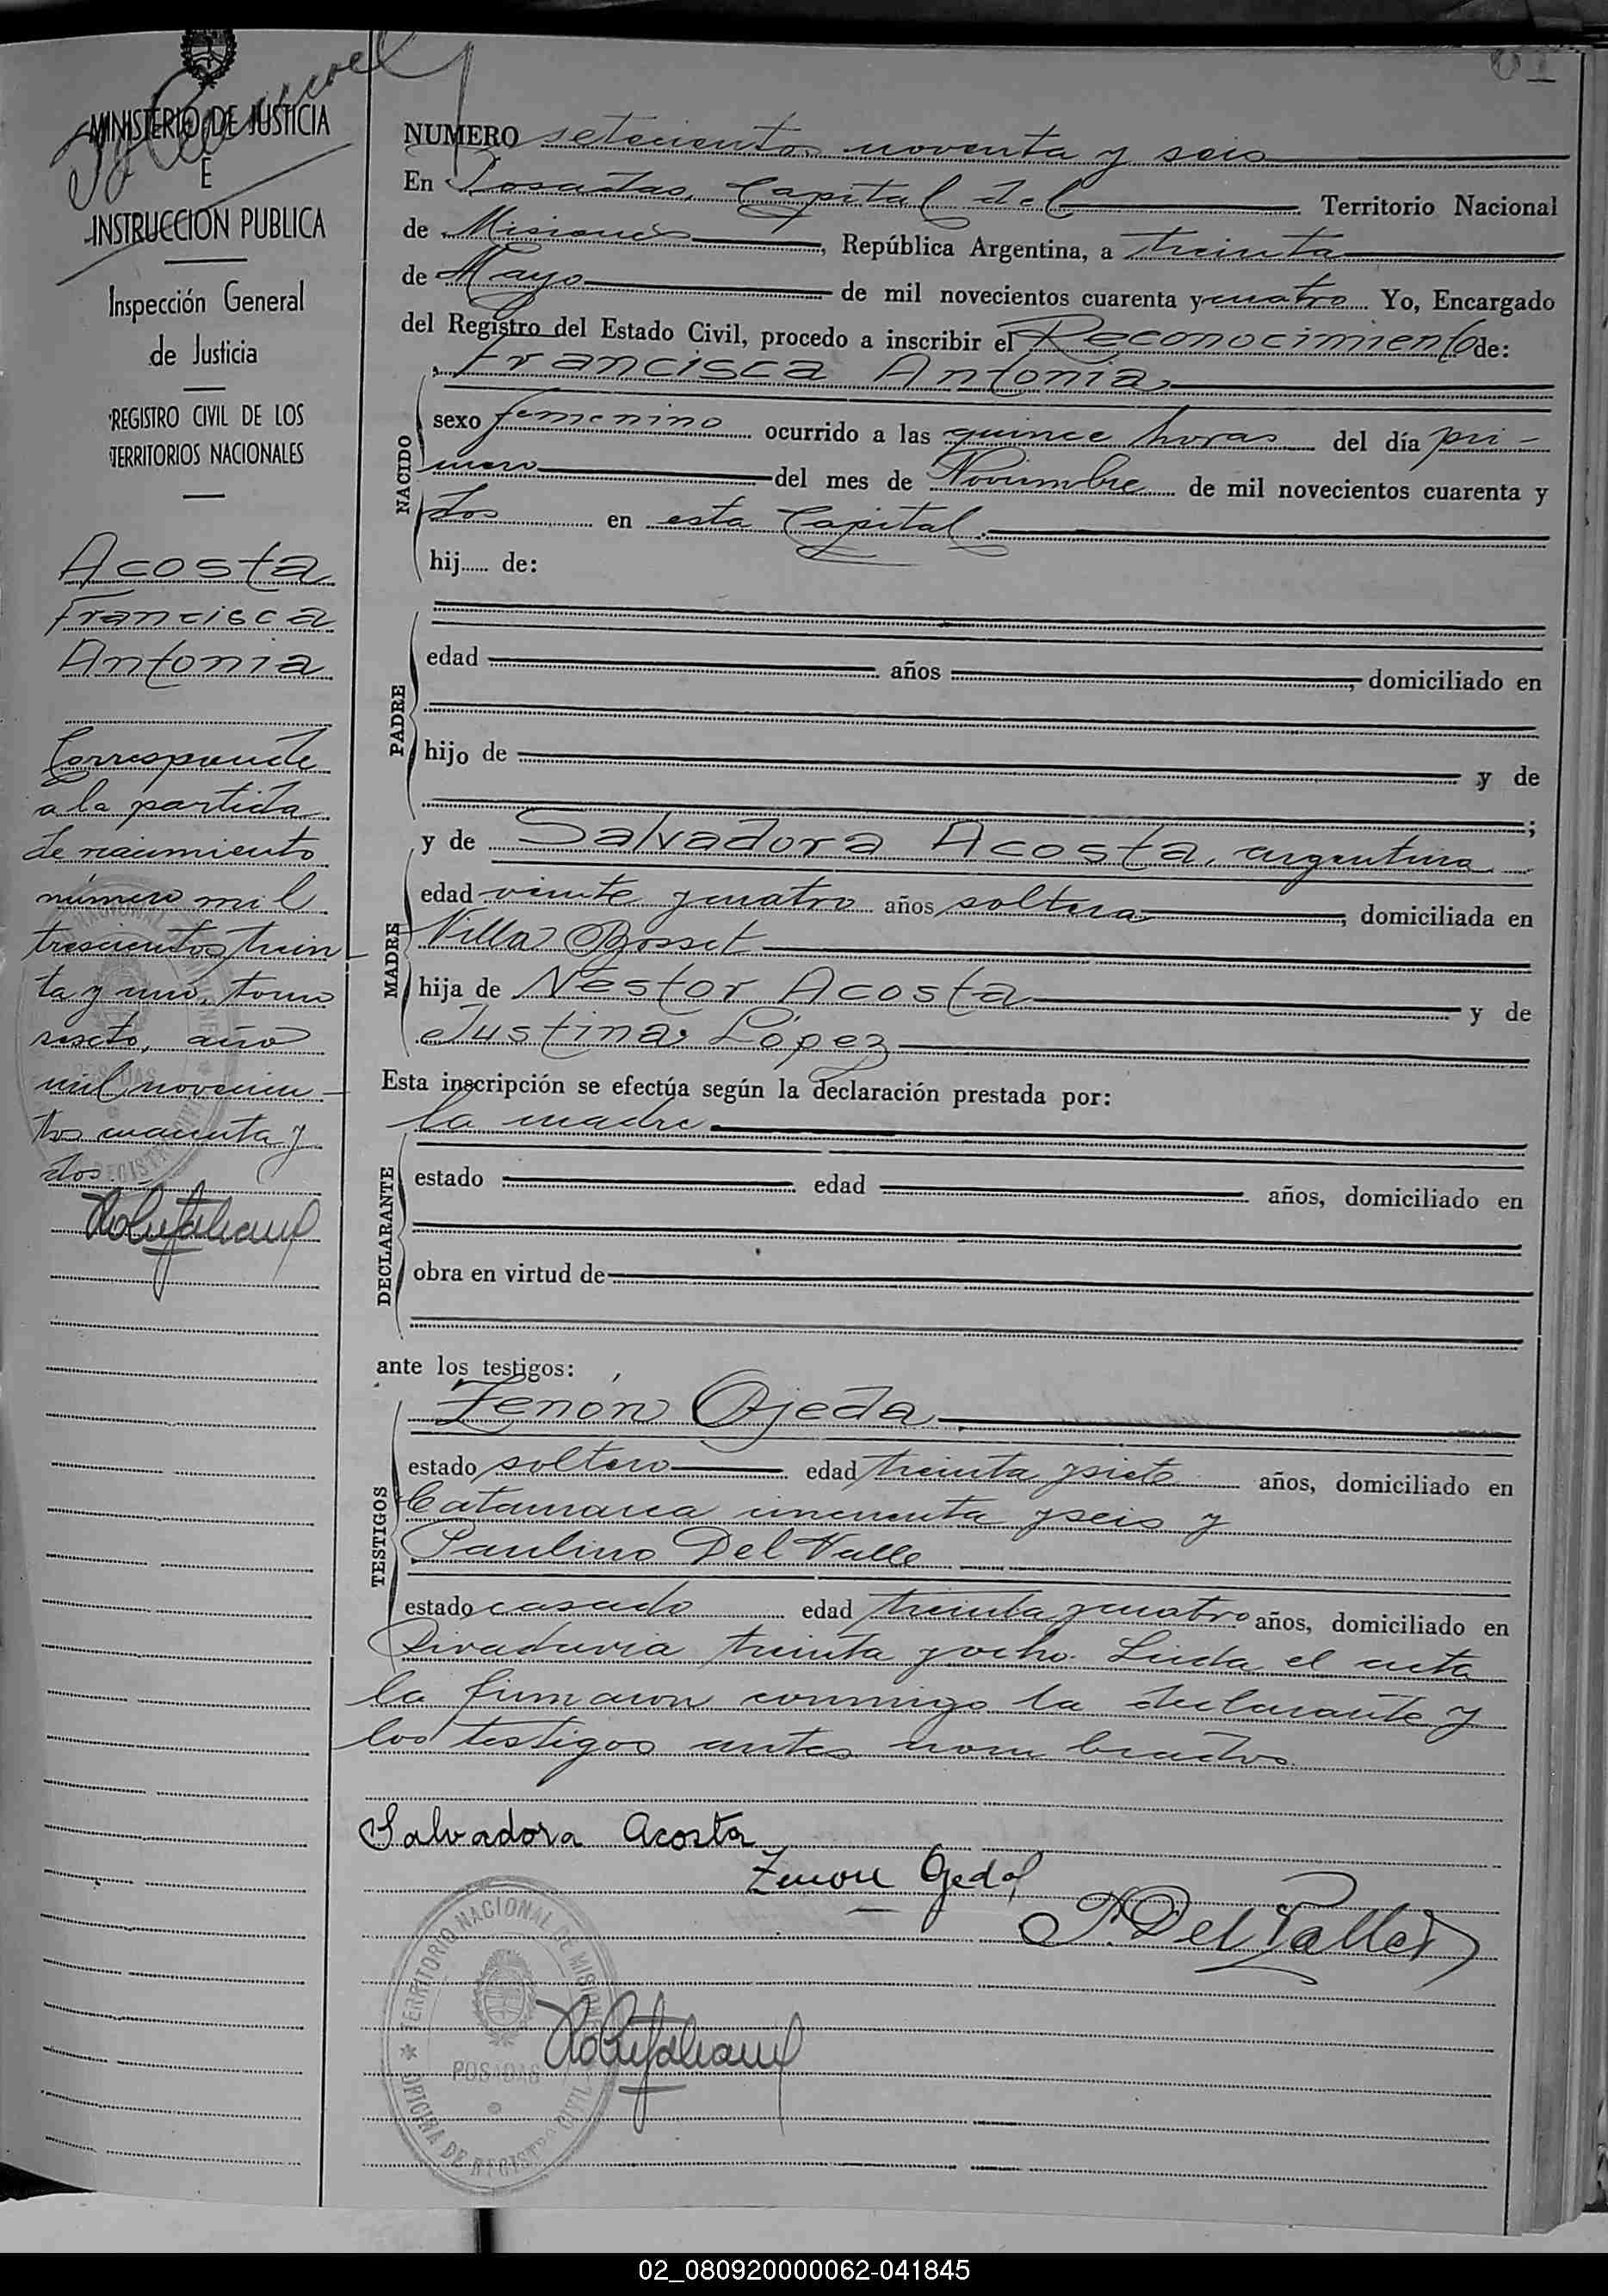 MINISTERIO DE JUSTICIA
E
INSTRUCCION PUBLICA
Inspección General
de Justicia
REGISTRO CIVIL DE LOS
TERRITORIOS NACIONALES
Acosta
Francisca
Antonia
Corresponde
a la partida
de nacimiento
número mil
trescientos trein
ta y uno, tomo
sexto, año
mil novecien-
tos cuarenta y
dos.
NUMERO setecientos noventa y seis
En Posadas, Capital del Territorio Nacional
de Misiones, República Argentina, a treinta
de Mayo de mil novecientos cuarenta y cuatro Yo, Encargado
del Registro del Estado Civil, procedo a inscribir el Reconocimiento de:
Francisca Antonia
NACIDO
sexo femenino ocurrido a las quince horas del día pri-
mero del mes de Noviembre de mil novecientos cuarenta y
dos en esta Capital.
hij...... de:
PADRE
edad años, domiciliado en
hijo de y de
;
y de Salvadora Acosta, argentina
MADRE
edad veinte y cuatro años soltera, domiciliada en
Villa Bosset
hija de Néstor Acosta y de
Justina López
Esta inscripción se efectúa según la declaración prestada por:
la madre
DECLARANTE
estado edad años, domiciliado en
obra en virtud de
ante los testigos:
Zenón Ojeda
TESTIGOS
estado soltero edad treinta y siete años, domiciliado en
Catamarca cincuenta y seis y
Paulino Del Valle
estado casado edad treinta y cuatro años, domiciliado en
Rivadavia treinta y ocho. Leida el acta
la firmaron conmigo la declarante y
los testigos antes nombrados.
Salvadora Acosta
Zenon Ojeda
P. Del Valle
TERRITORIO NACIONAL DE MISIONES
POSADAS
OFICINA DE REGISTRO CIVIL
02_080920000062-041845